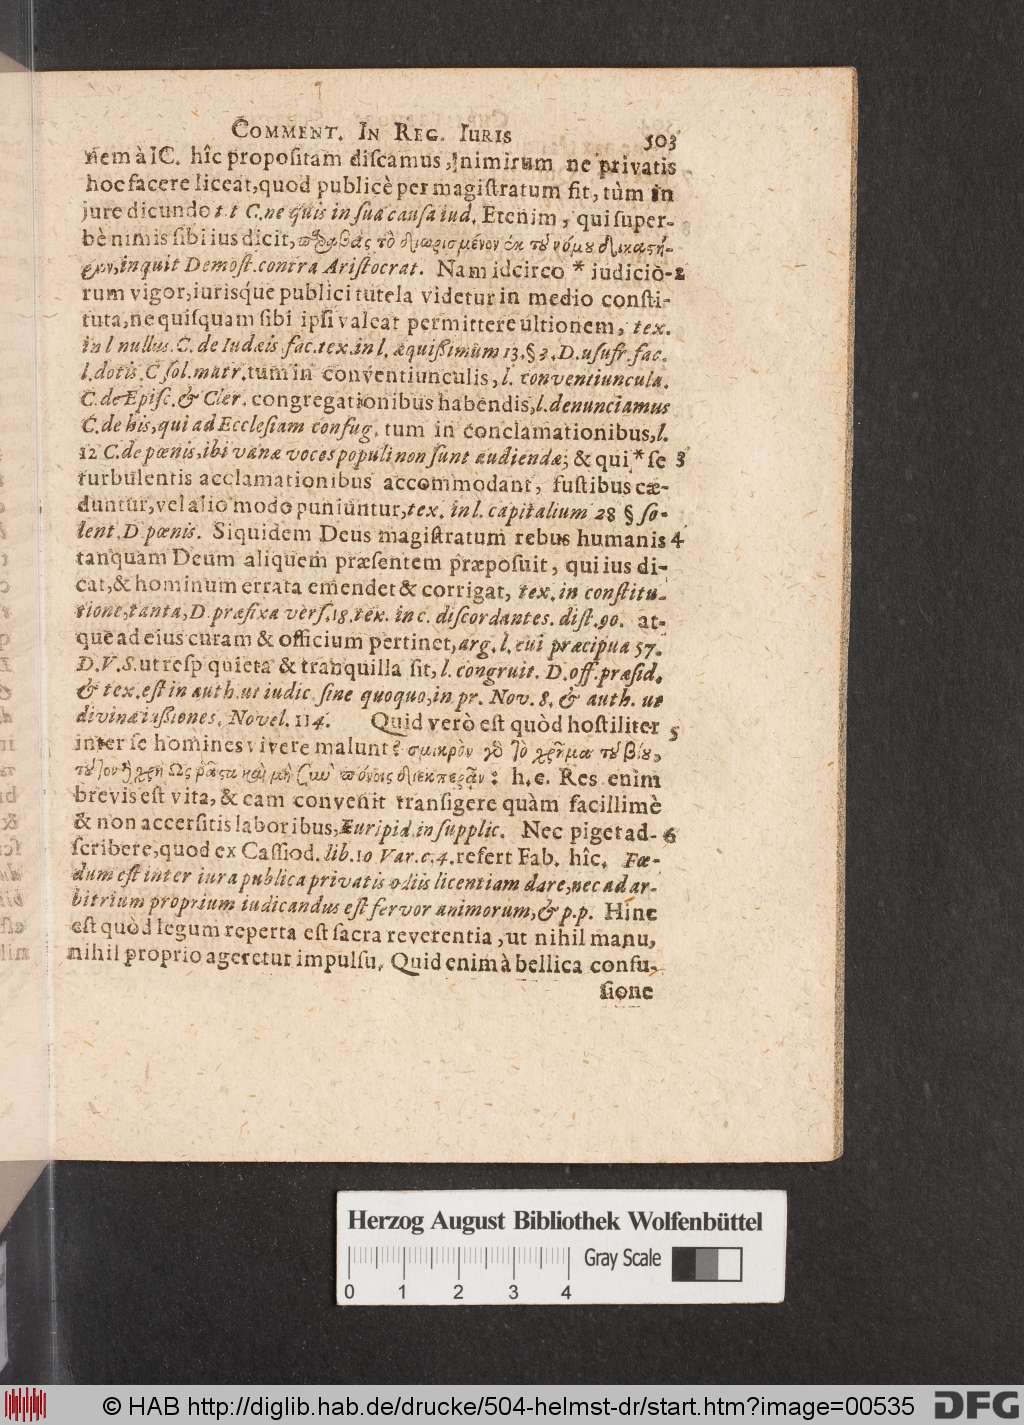 COMMENT. IN REG. IURIS 503
nem à IC. hîc propositam discamus, nimirum ne privatis
hoc facere liceat, quod publicè per magistratum fit, tùm in
jure dicundo t.t C. ne quis in sua causa iud. Etenim, qui super-
bè nimis sibi ius dicit, τὸ διωρισμένον ἐκ τοῦ νόμου δικαστή-
ριον, inquit Demost. contra Aristocrat. Nam idcirco * iudiciō- 2
rum vigor, iurisq́ue publici tutela videtur in medio consti-
tuta, ne quisquam sibi ipsi valeat permittere ultionem, tex.
in l nullus. C. de Iudæis fac. tex. in l. æquißimum 13. § 3. D. usufr. fac.
l. dotis. C sol. matr. tum in conventiunculis, l. conventiuncula.
C. de Episc. & Cler. congregationibus habendis, l. denunciamus
C. de his, qui ad Ecclesiam confug. tum in conclamationibus, l.
12 C. de pœnis, ibi vanæ voces populi non sunt audiendæ; & qui * se 3
turbulentis acclamationibus accommodant, fustibus cæ-
duntur, vel alio modo puniuntur, tex. in l. capitalium 28 § so-
lent. D pœnis. Siquidem Deus magistratum rebus humanis 4
tanquam Deum aliquem præsentem præposuit, qui ius di-
cat, & hominum errata emendet & corrigat, tex. in constitu-
tione, tanta, D præfixa vers. 18. tex. in c. discordantes. dist. 90. at-
que ad eius curam & officium pertinet, arg. l. cui præcipua 57.
D. V. S. ut resp quieta & tranquilla sit, l. congruit. D. off. præsid.
& tex. est in auth. ut iudic. sine quoquo, in pr. Nov. 8. & auth. ut
divinæ iußiones. Novel. 114. Quid verò est quòd hostiliter 5
inter se homines vivere malunt? σμικρὸν γὸ τὸ χρῆμα τοῦ βίου,
τοῦτον ἢ χρὴ ὡς ῥᾷστα καὶ μὴ ζωὺ πόνοις διεκπερᾶν: h. e. Res enim
brevis est vita, & eam convenit transigere quàm facillimè
& non accersitis laboribus, Euripid. in supplic. Nec piget ad- 6
scribere, quod ex Cassiod. lib. 10 Var. c. 4. refert Fab. hîc. Fœ-
dum est inter iura publica privatis odiis licentiam dare, nec ad ar-
bitrium proprium iudicandus est fervor animorum, & p.p. Hinc
est quòd legum reperta est sacra reverentia, ut nihil manu,
nihil proprio ageretur impulsu, Quid enim à bellica confu-
sione
Herzog August Bibliothek Wolfenbüttel
Gray Scale
0 1 2 3 4
© HAB http://diglib.hab.de/drucke/504-helmst-dr/start.htm?image=00535
DFG